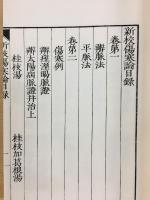 新校傷寒論目録
卷第一
辨脉法
平脉法
卷第二
傷寒例
辨痙濕暍脉證
辨太陽病脉證并治上
桂枝湯
桂枝加葛根湯
新校傷寒論目録